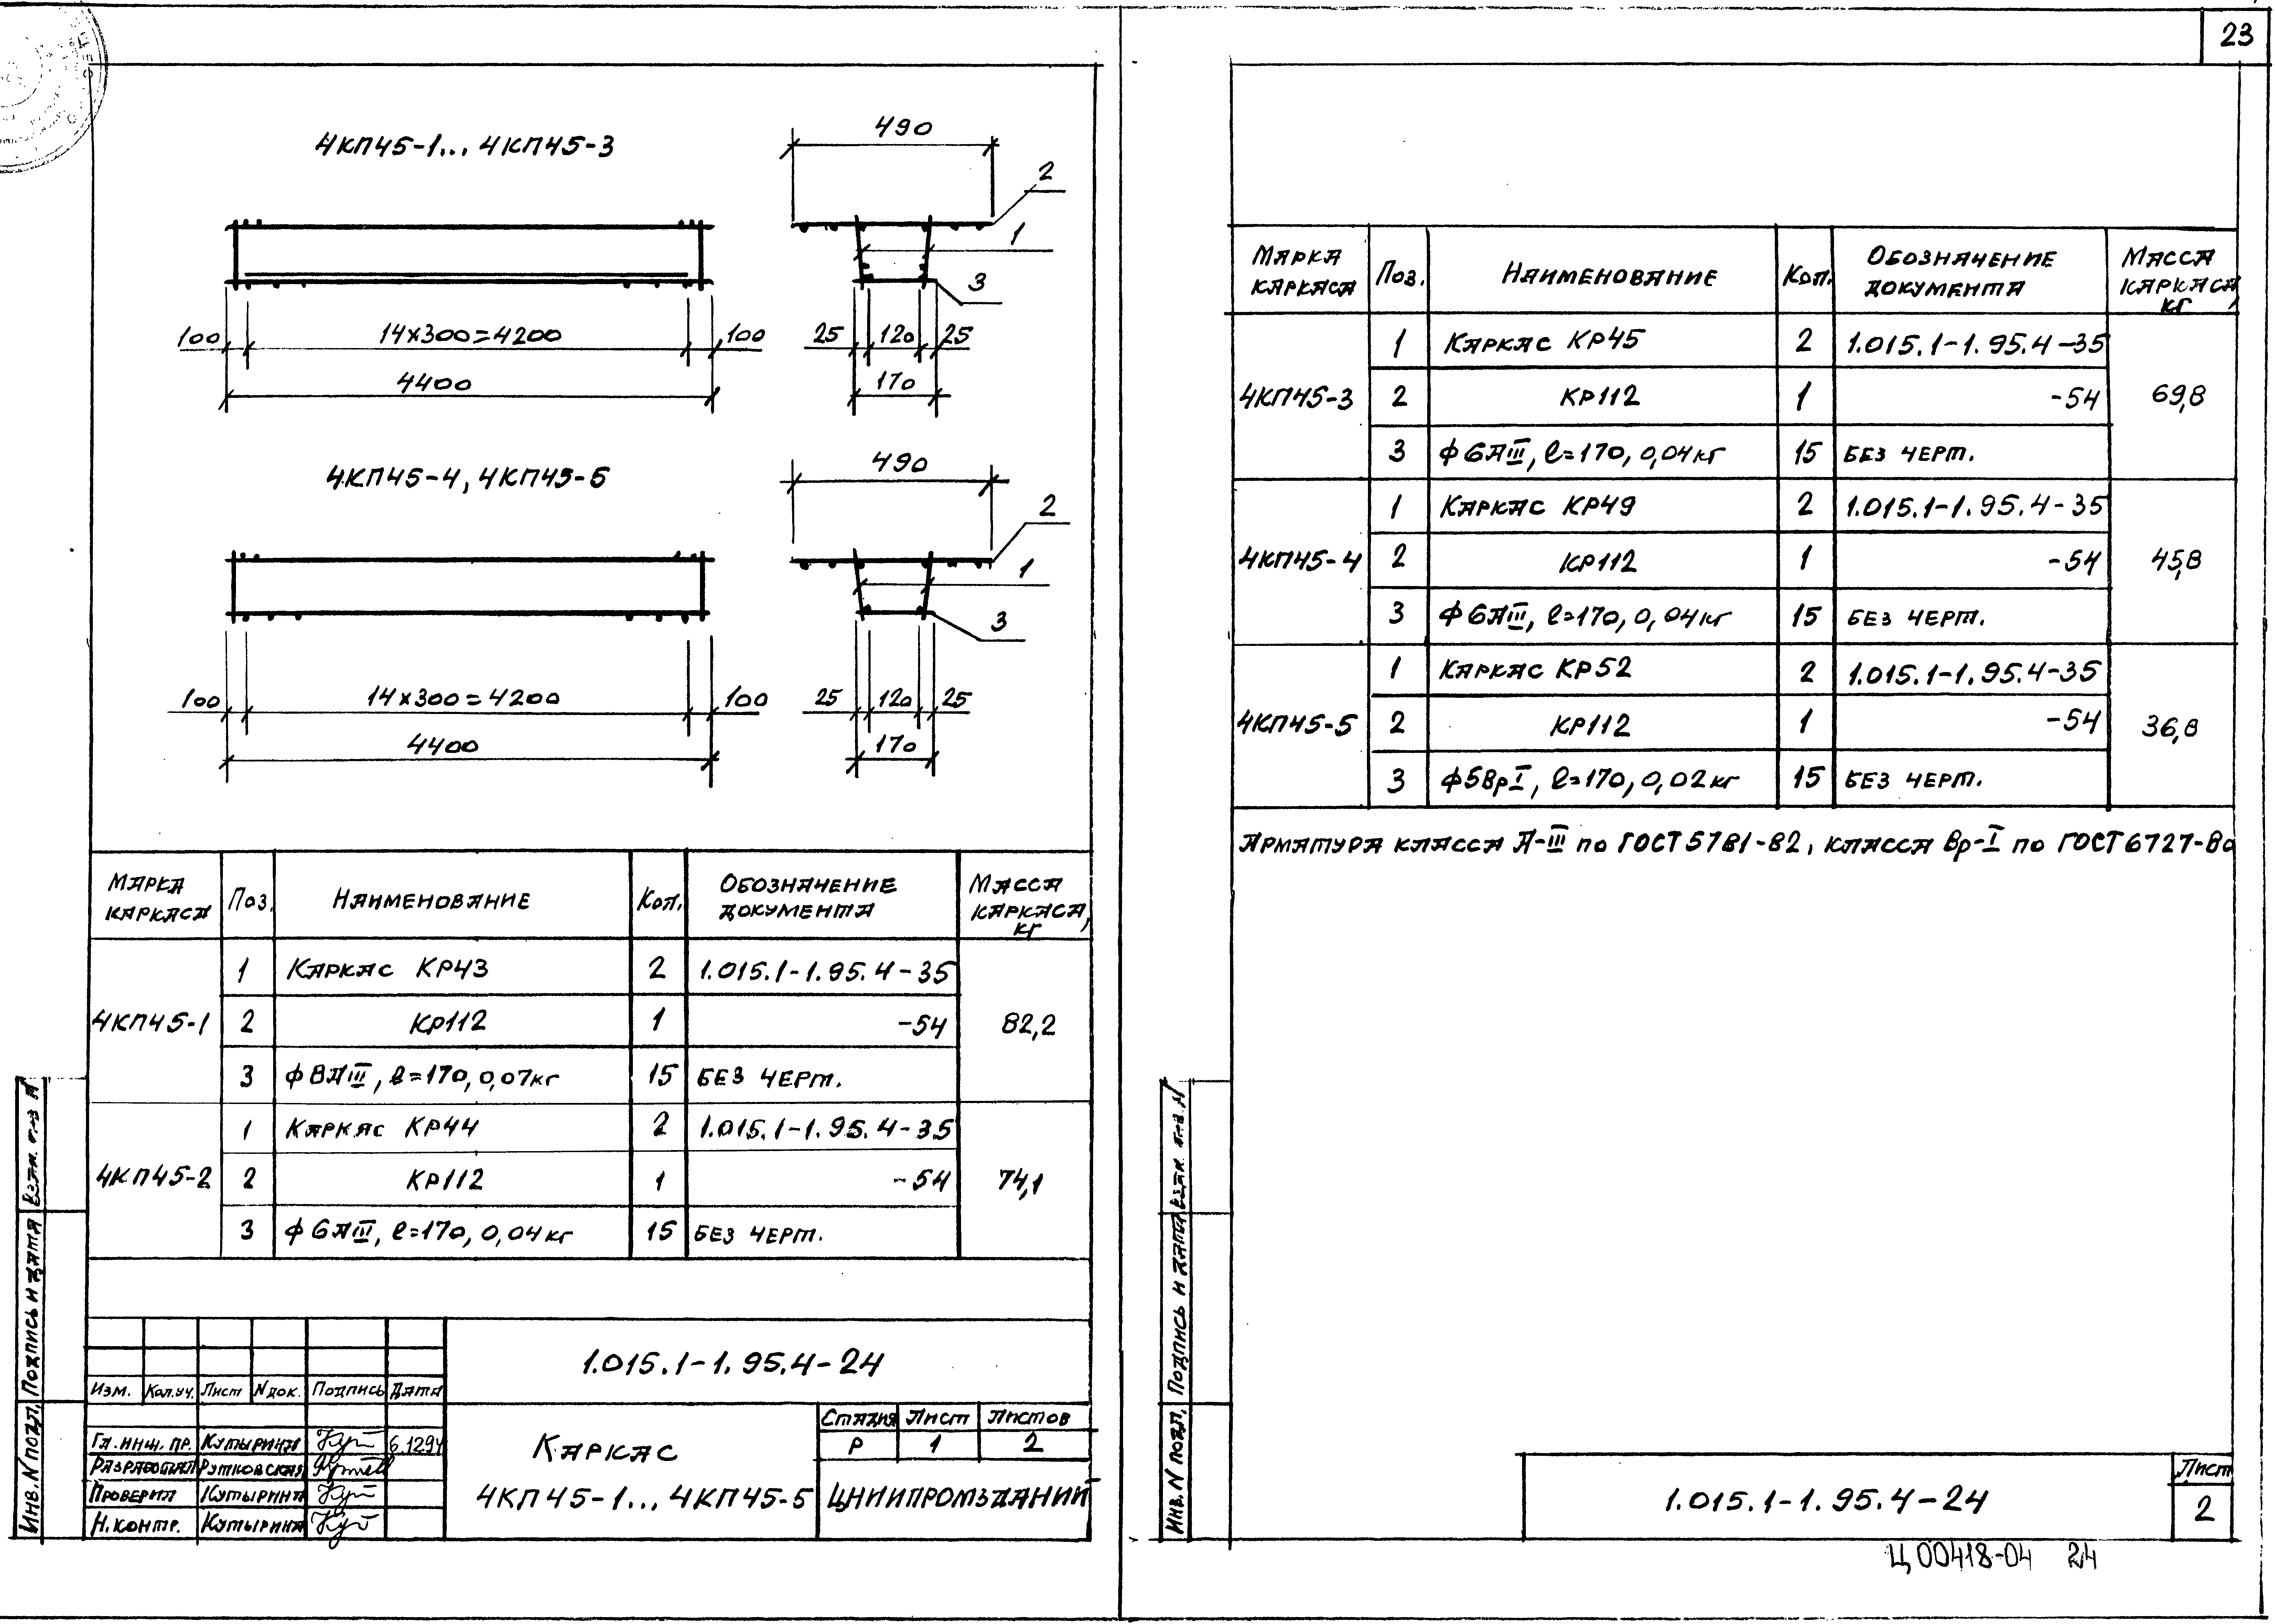 23
4КП45-1... 4КП45-3
490
2
1
3
100
14×300=4200
100
4400
25
120
25
170
4КП45-4, 4КП45-5
490
2
1
3
100
14×300=4200
100
4400
25
120
25
170
Марка каркаса
Поз.
Наименование
Кол.
Обозначение документа
Масса каркаса, кг
4КП45-1
1 Каркас КР43 2 1.015.1-1.95.4-35
2 КР112 1 -54
82,2
3 ф8АIII, l=170, 0,07кг 15 без черт.
4КП45-2
1 Каркас КР44 2 1.015.1-1.95.4-35
2 КР112 1 -54
74,1
3 ф6АIII, l=170, 0,04кг 15 без черт.
1.015.1-1.95.4-24
Изм. Кол.уч. Лист Nдок. Подпись Дата
Гл. инж. пр. Кутырина 6.1294
Разработал Рутковская
Проверил Кутырина
Н. контр. Кутырина
Каркас
4КП45-1... 4КП45-5
Стадия Лист Листов
Р 1 2
ЦНИИПРОМЗДАНИЙ
Инв. N подл. Подпись и дата Взам. инв. N
Марка каркаса
Поз.
Наименование
Кол.
Обозначение документа
Масса каркаса, кг
4КП45-3
1 Каркас КР45 2 1.015.1-1.95.4-35
2 КР112 1 -54
69,8
3 ф6АIII, l=170, 0,04кг 15 без черт.
4КП45-4
1 Каркас КР49 2 1.015.1-1.95.4-35
2 КР112 1 -54
45,8
3 ф6АIII, l=170, 0,04кг 15 без черт.
4КП45-5
1 Каркас КР52 2 1.015.1-1.95.4-35
2 КР112 1 -54
36,8
3 ф5ВрI, l=170, 0,02кг 15 без черт.
Арматура класса А-III по ГОСТ 5781-82, класса Вр-I по ГОСТ 6727-80
Инв. N подл. Подпись и дата Взам. инв. N
1.015.1-1.95.4-24
Лист
2
Ц00418-04 24